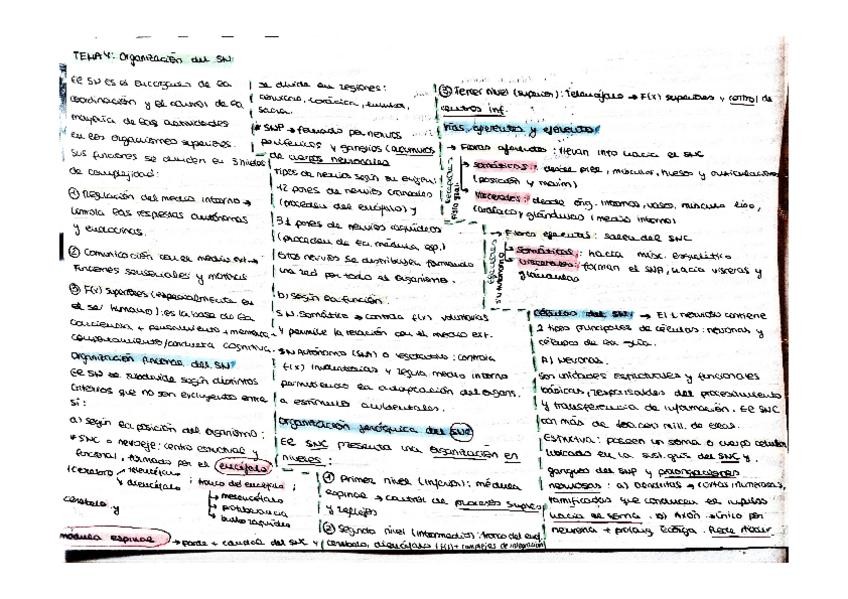 TEMA 4: Organización del SN
El SN es el encargado de la
coordinación y el control de la
mayoría de las actividades
en los organismos superiores.
Sus funciones se dividen en 3 niveles
de complejidad:
① Regulación del medio interno →
controla las respuestas autónomas
y endocrinas.
② Comunicación con el medio ext →
Funciones sensoriales y motoras
③ F(x) superiores (especialmente en
el ser humano): es la base de la
conciencia + pensamiento + memoria +
comportamiento/conducta cognitiva.
Organización funcional del SN
El SN se subdivide según distintos
criterios que no son excluyentes entre
sí:
a) según la posición del organismo:
* SNC o neuroeje: centro estructural y
funcional, formado por el encéfalo
(cerebro → telencéfalo
→ diencéfalo ; tronco del encéfalo ;
→ mesencéfalo
→ protuberancia
→ bulbo raquídeo
cerebelo y
médula espinal → parte + caudal del SNC y
se divide en regiones:
cervical, torácica, lumbar,
sacra.
* SNP → formado por nervios
periféricos y ganglios (acúmulos
de cuerpos neuronales
Tipos de nervios según su origen:
12 pares de nervios craneales
(proceden del encéfalo) y
31 pares de nervios raquídeos
(proceden de la médula esp.)
Estos nervios se distribuyen formando
una red por todo el organismo.
b) según la función:
SN Somático → controla f(x) voluntarias
y permite la relación con el medio ext.
SN Autónomo (SNA) o vegetativo: controla
f(x) involuntarias y regula medio interno
permitiendo la adaptación del organis.
a estímulos ambientales.
Organización jerárquica del SNC
El SNC presenta una organización en
niveles:
① Primer nivel (inferior): médula
espinal → control de procesos
y reflejos
② Segundo nivel (intermedio): tronco del enc,
cerebelo, diencéfalo (f(x) + complejas de integración
③ Tercer nivel (superior): Telencéfalo → F(x) superiores y control de
centros inf.
Vías aferentes y eferentes
→ Fibras aferentes: llevan info hacia el SNC
→ somáticas: desde piel, músculos, huesos y articulaciones
(posición y movim)
→ Viscerales: desde órg. internos, vasos, músculo liso,
(cardíaco) glándulas (medio interno)
→ Fibras eferentes: salen del SNC
→ somáticas: hacia músc. esquelético
→ viscerales: forman el SNA, hacia vísceras y
glándulas
Células del SN → El t. nervioso contiene
2 tipos principales de células: neuronas y
células de la glía.
A) Neuronas.
Son unidades estructurales y funcionales
básicas, responsables del procesamiento
y transferencia de información. El SNC
con más de 100.000 mill. de ellas.
Estructura: poseen un soma o cuerpo celular
ubicado en la sust. gris del SNC y
ganglios del SNP y prolongaciones
nerviosas: a) Dendritas → cortas, numerosas,
ramificadas que conducen el impulso
hacia el soma. b) Axón → único por
neurona + prolong. larga.